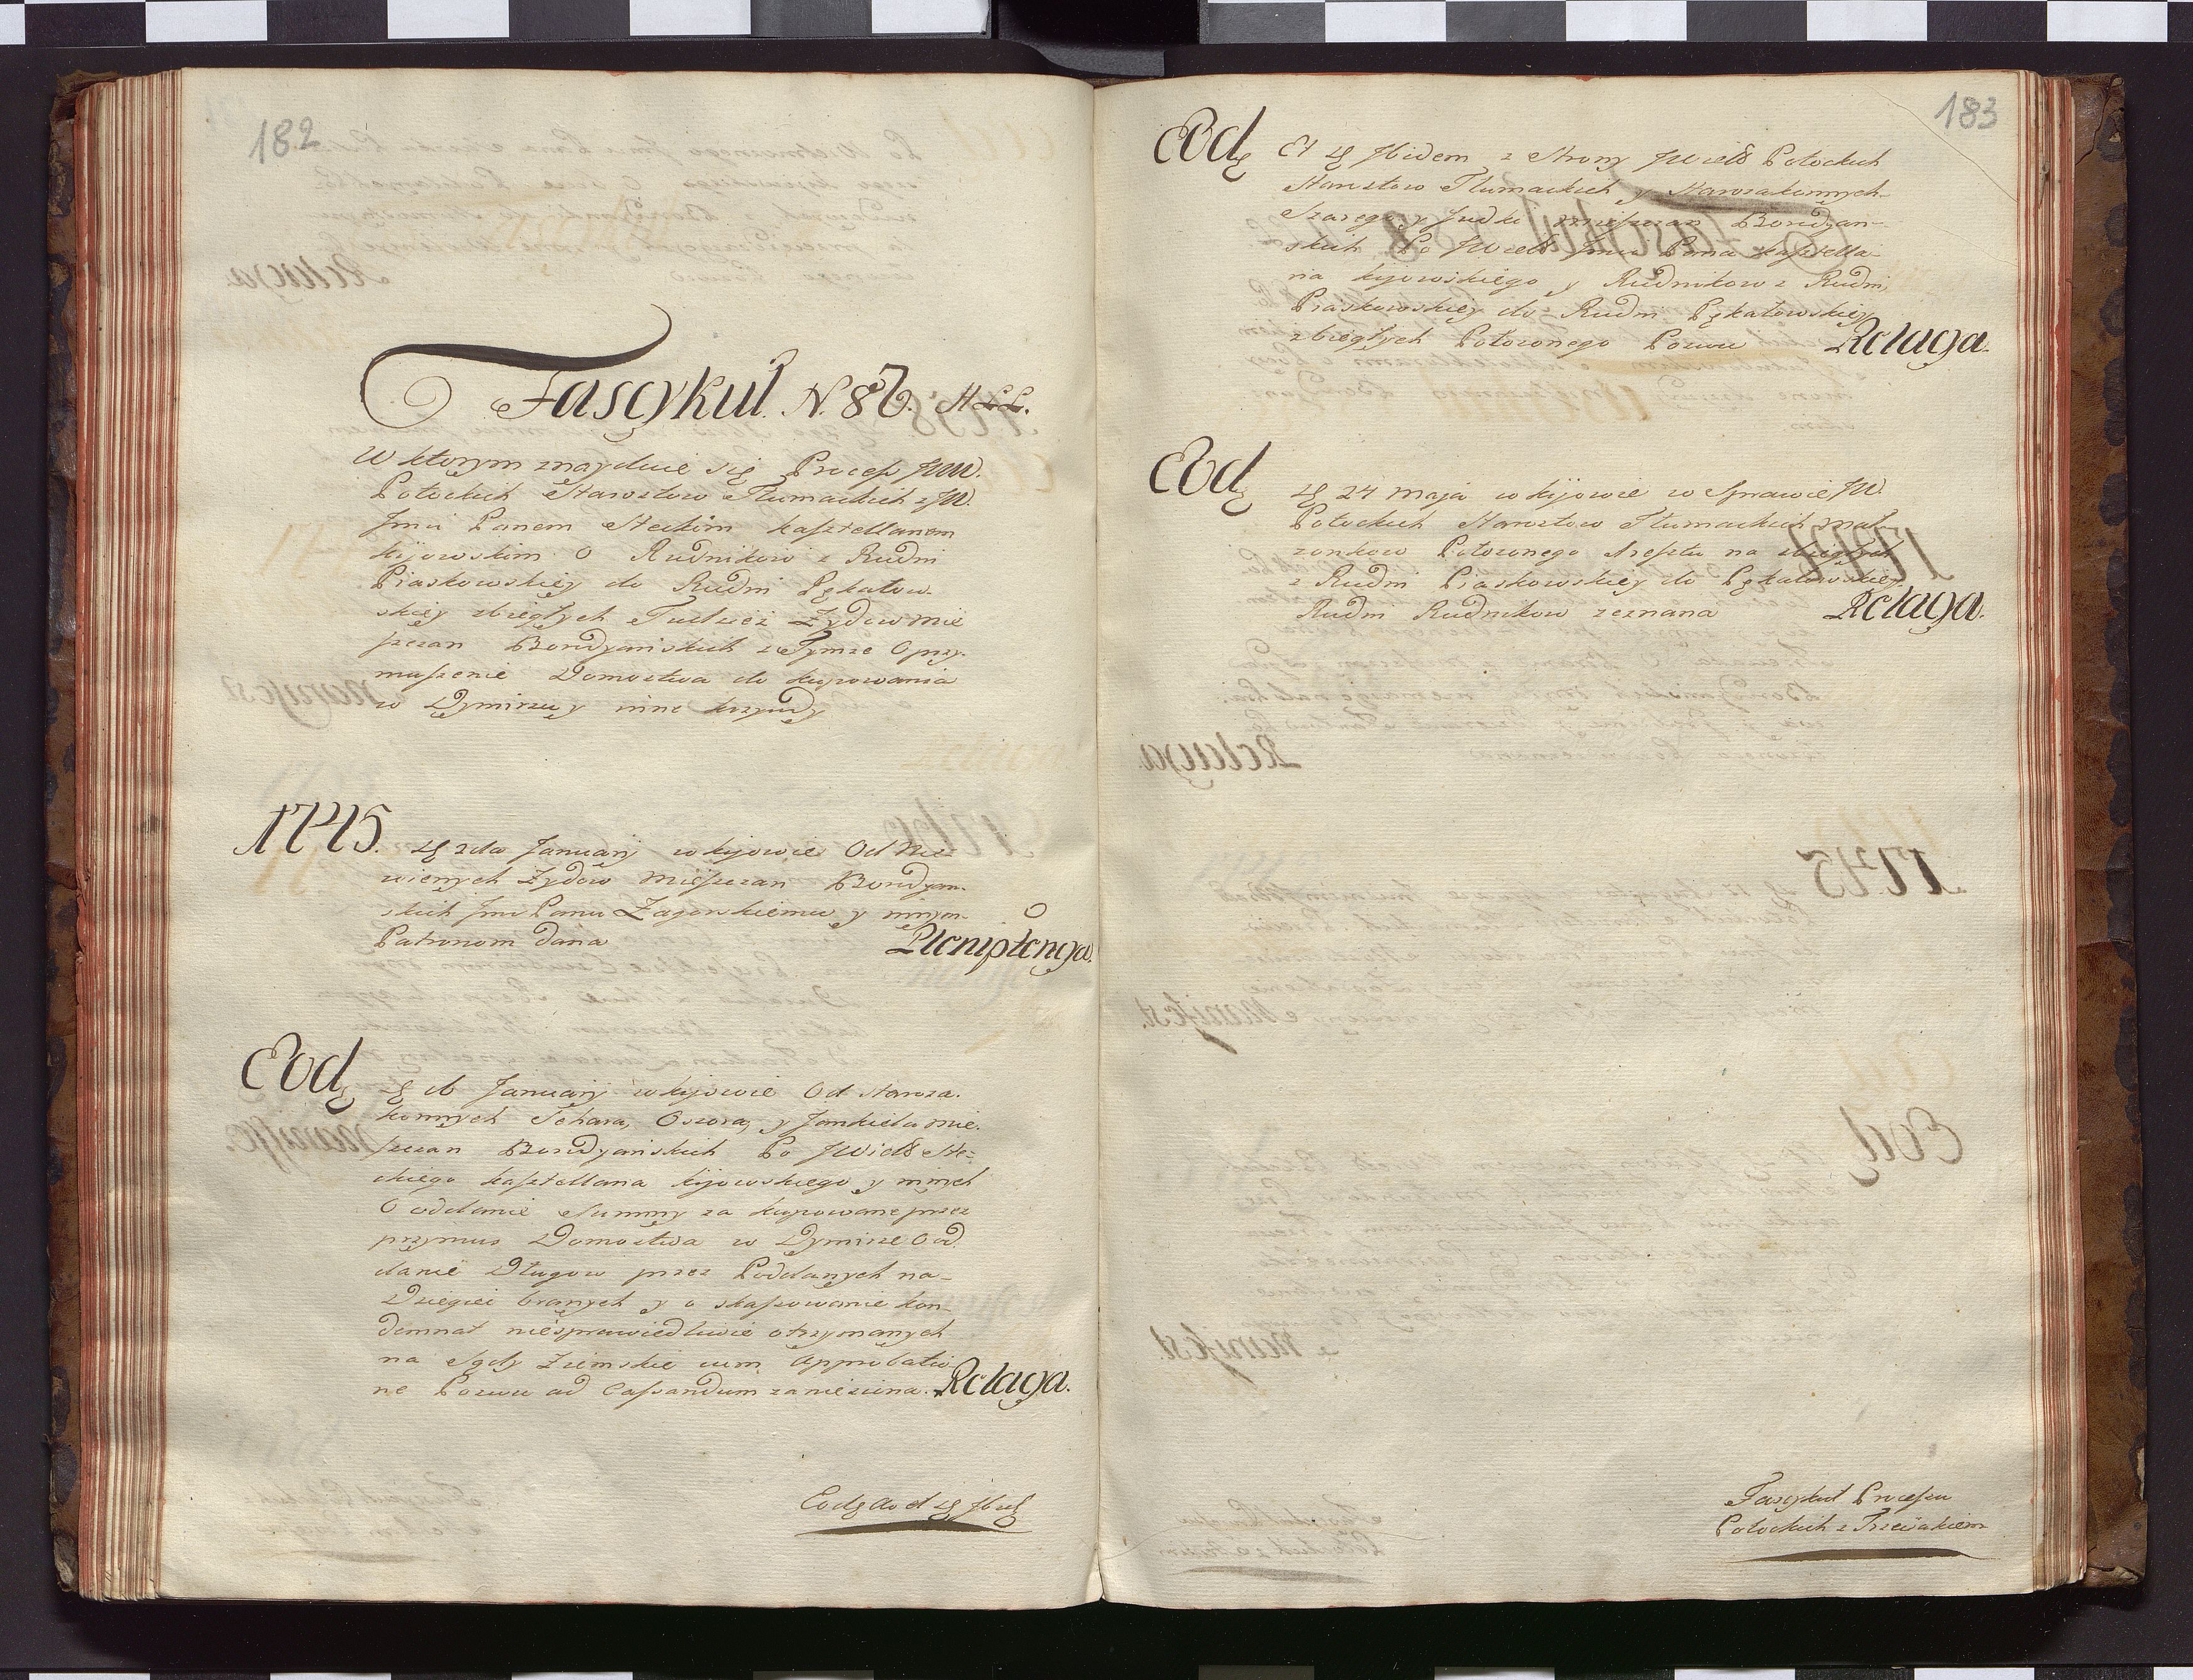 182
Fascykuł. N. 87. H
W ktorym znayduie się Process JWW.
Potockich Starostow Tłumackich z JW.
Jmci Panem Steckim kasztellanem
kijowskim O Rudnikow z Rudni
Piaskowskiey do Rudni Pękałow-
skiey zbiegłych Tudzież Żydow mie
szczan Bordyańskich z Tymże O przy-
muszenie Domostwa do kupowania
w Dymirzu y inne krzywdy
1745. Januarij w kijowie Od Nie-
wiernych Żydow Mieszczan Bordyan-
skich Jmci Panu Zagorskiemu y innym
Patronom dana
Plenipotencya.
Eod. Januarij w kijowie Od Staroza-
konnych Szchara, Oszora, y Jankiela mie-
szczan Bordyańskich Po JWielo Ste-
ckiego kasztellana kijowskiego y innych
O oddanie Summy za kupowane przez
przymus Domostwa w Dymirze Od-
danie Długow przez Poddanych na-
Dziegieć branych y o skassowanie kon-
demnat niesprawiedliwie otrzymanych
na Sądy Ziemskie cum Approbatio-
ne Pozwu ad Cassandum zaniesiona. Relacya.
183
Eod. Et Ibidem z Strony JWielo Potockich
Starostow Tłumackich y Starozakonnych
Szarego y Judki mieszczan Bordyan-
skich Po JWielo Jmci Pana kasztella-
na kijowskiego y Rudnikow z Rudni
Piaskowskiey do Rudni Pękałowskiey
zbiegłych Położonego Pozwu Relacya.
Eod. 24 Maja w kijowie w Sprawie JW.
Potockich Starostow Tłumackich Mał-
żonkow Położonego Aresztu na zbiegłych
z Rudni Piaskowskiey do Pękałowskiey
Rudni Rudnikow zeznana Relacya.
Fascykuł Processu
Potockich z Trzeciakiem